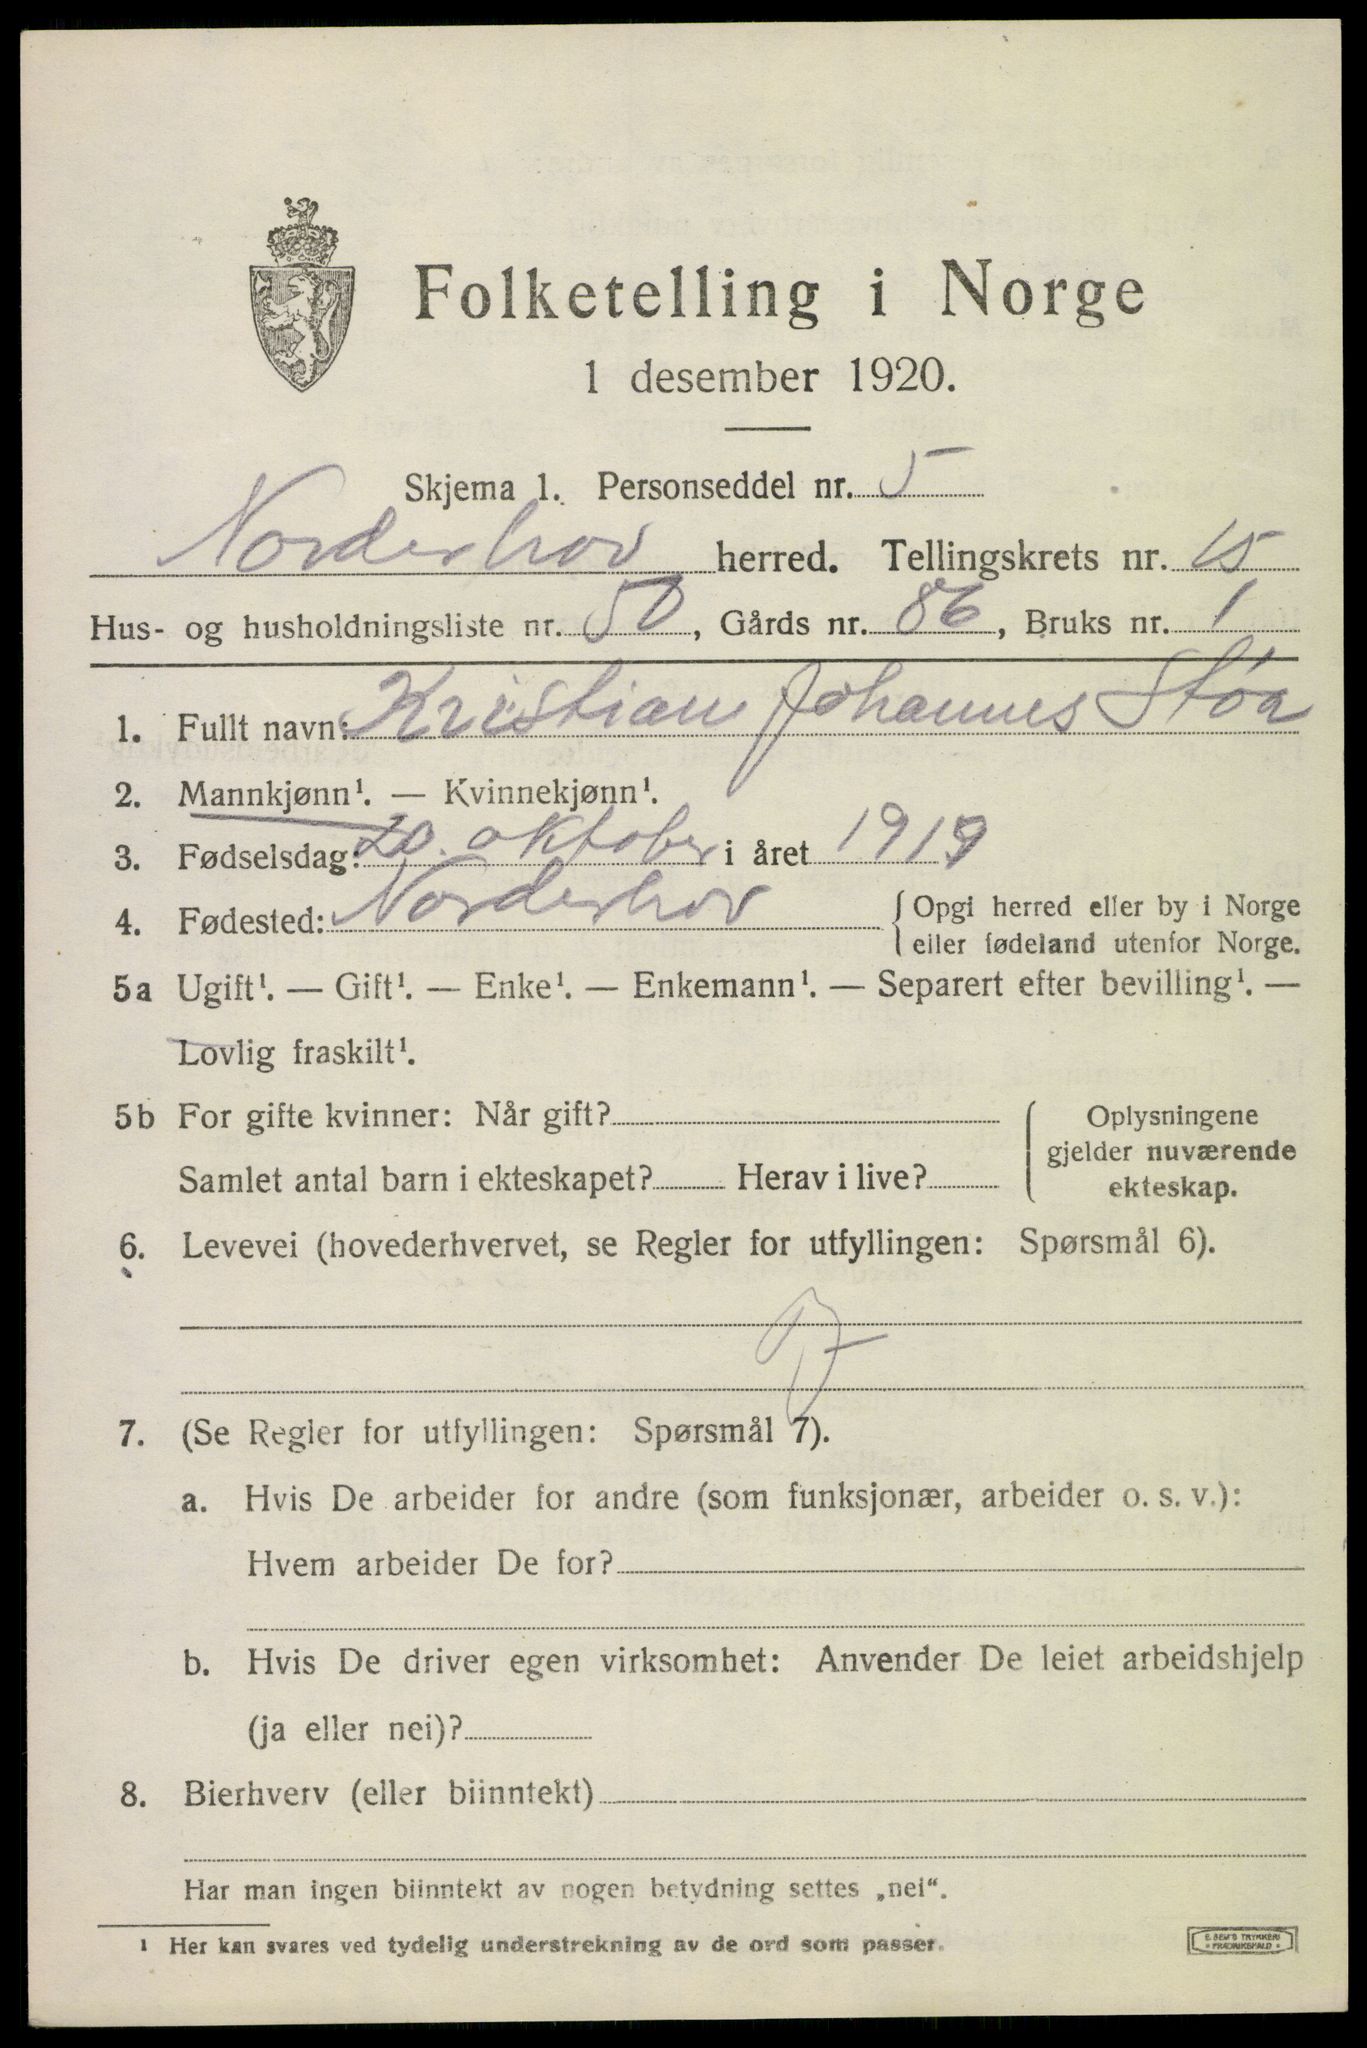 Folketelling i Norge
1 desember 1920.
Skjema 1. Personseddel nr. 5
Norderhov herred. Tellingskrets nr. 15
Hus- og husholdningsliste nr. 50, Gårds nr. 86, Bruks nr. 1
1. Fullt navn: Kristian Johannes Støa
2. Mannkjønn¹. — Kvinnekjønn¹.
3. Fødselsdag: 20. oktober i året 1919
4. Fødested: Norderhov { Opgi herred eller by i Norge
eller fødeland utenfor Norge.
5a Ugift¹. — Gift¹. — Enke¹. — Enkemann¹. — Separert efter bevilling¹. —
Lovlig fraskilt¹.
5b For gifte kvinner: Når gift?
Samlet antal barn i ekteskapet? Herav i live?
Oplysningene
gjelder nuværende
ekteskap.
6. Levevei (hovederhvervet, se Regler for utfyllingen: Spørsmål 6).
7. (Se Regler for utfyllingen: Spørsmål 7).
a. Hvis De arbeider for andre (som funksjonær, arbeider o. s. v.):
Hvem arbeider De for?
b. Hvis De driver egen virksomhet: Anvender De leiet arbeidshjelp
(ja eller nei)?
8. Bierhverv (eller biinntekt)
Har man ingen biinntekt av nogen betydning settes „nei“.
¹ Her kan svares ved tydelig understrekning av de ord som passer.
E. SEM'S TRYKKERI
• FREDRIKSHALD •